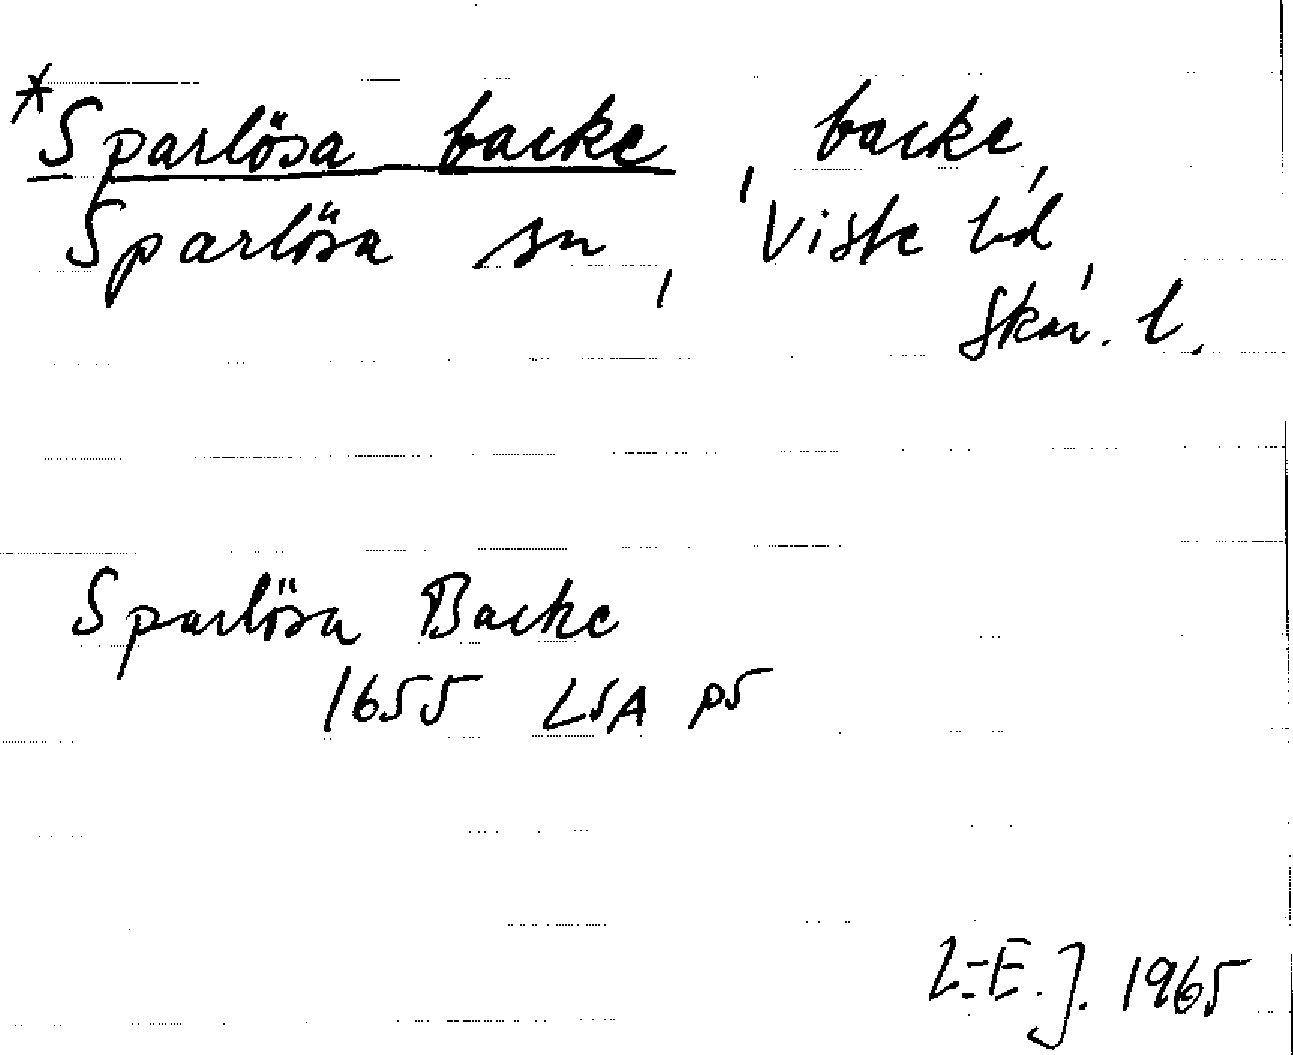 *Sparlösa backe, backe,
Sparlösa sn, Viste hd,
Skar. l.
Sparlösa Backe
1655 LSA p5
L-E.J. 1965